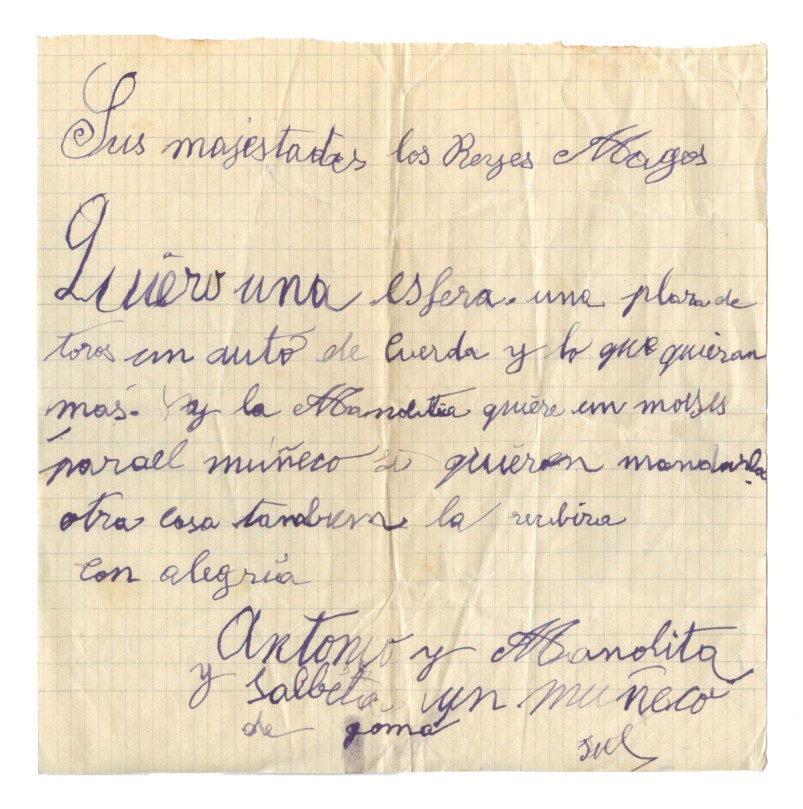 Sus majestades los Reyes Magos
Quiero una esfera. una plaza de
toros un auto de cuerda y lo que quieran
mas. y la Manolita quiere un moises
para el muñeco si quieren mandarla
otra cosa tambien la recibira
con alegria
Antonio y Manolita
y un muñeco
de goma